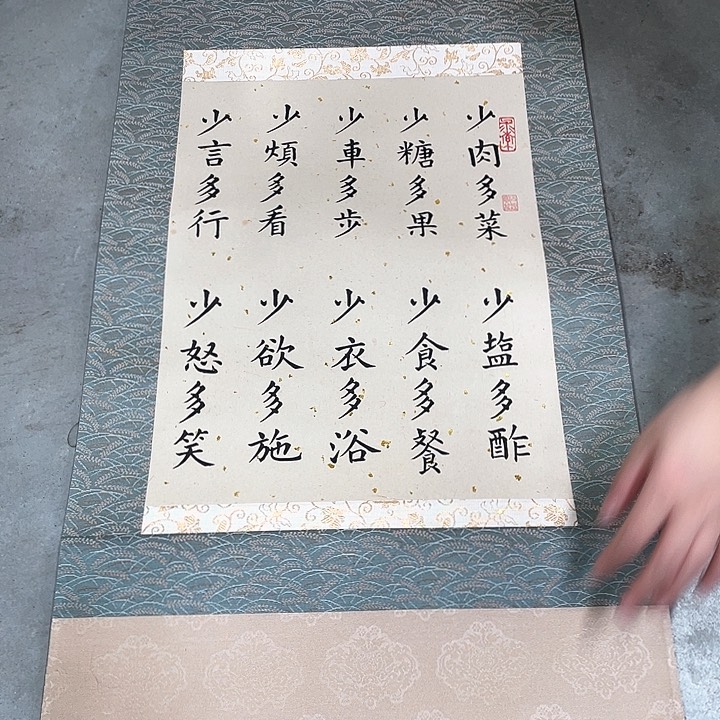 少肉多菜
少塩多酢
少糖多果
少食多餐
少車多步
少衣多浴
少煩多看
少欲多施
少言多行
少怒多笑